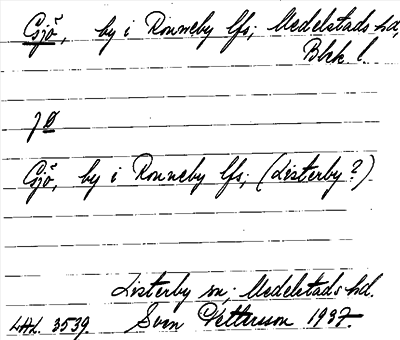 Csjö, by i Ronneby lfs; Medelstads hd,
Blek. l.
Csjö, by i Ronneby lfs; (Listerby?)
Listerby sn; Medelstads hd.
LHL. 3539. Sven Petterson 1937.